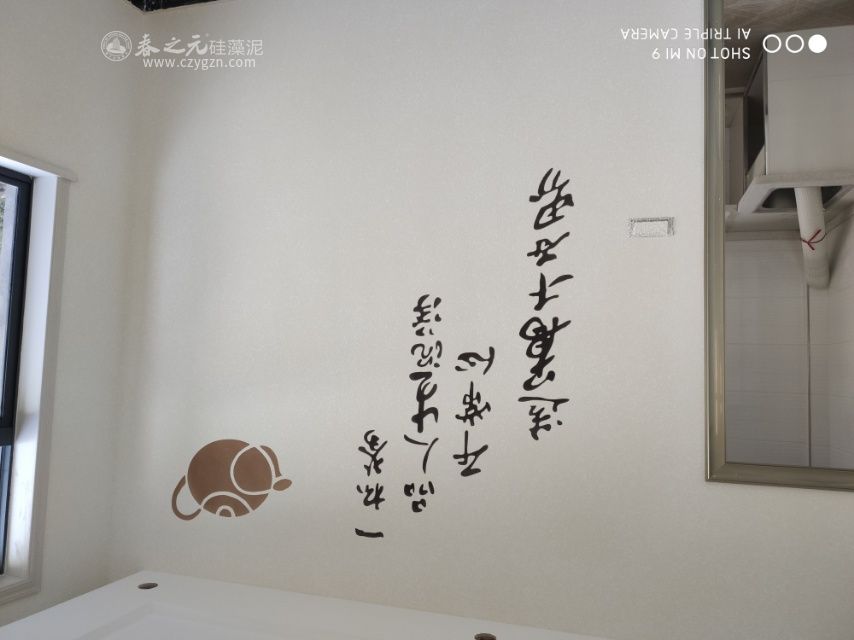 春之元硅藻泥
www.czygzn.com
一杯茶
品人生沉浮
平常心
造萬千世界
SHOT ON MI 9
AI TRIPLE CAMERA